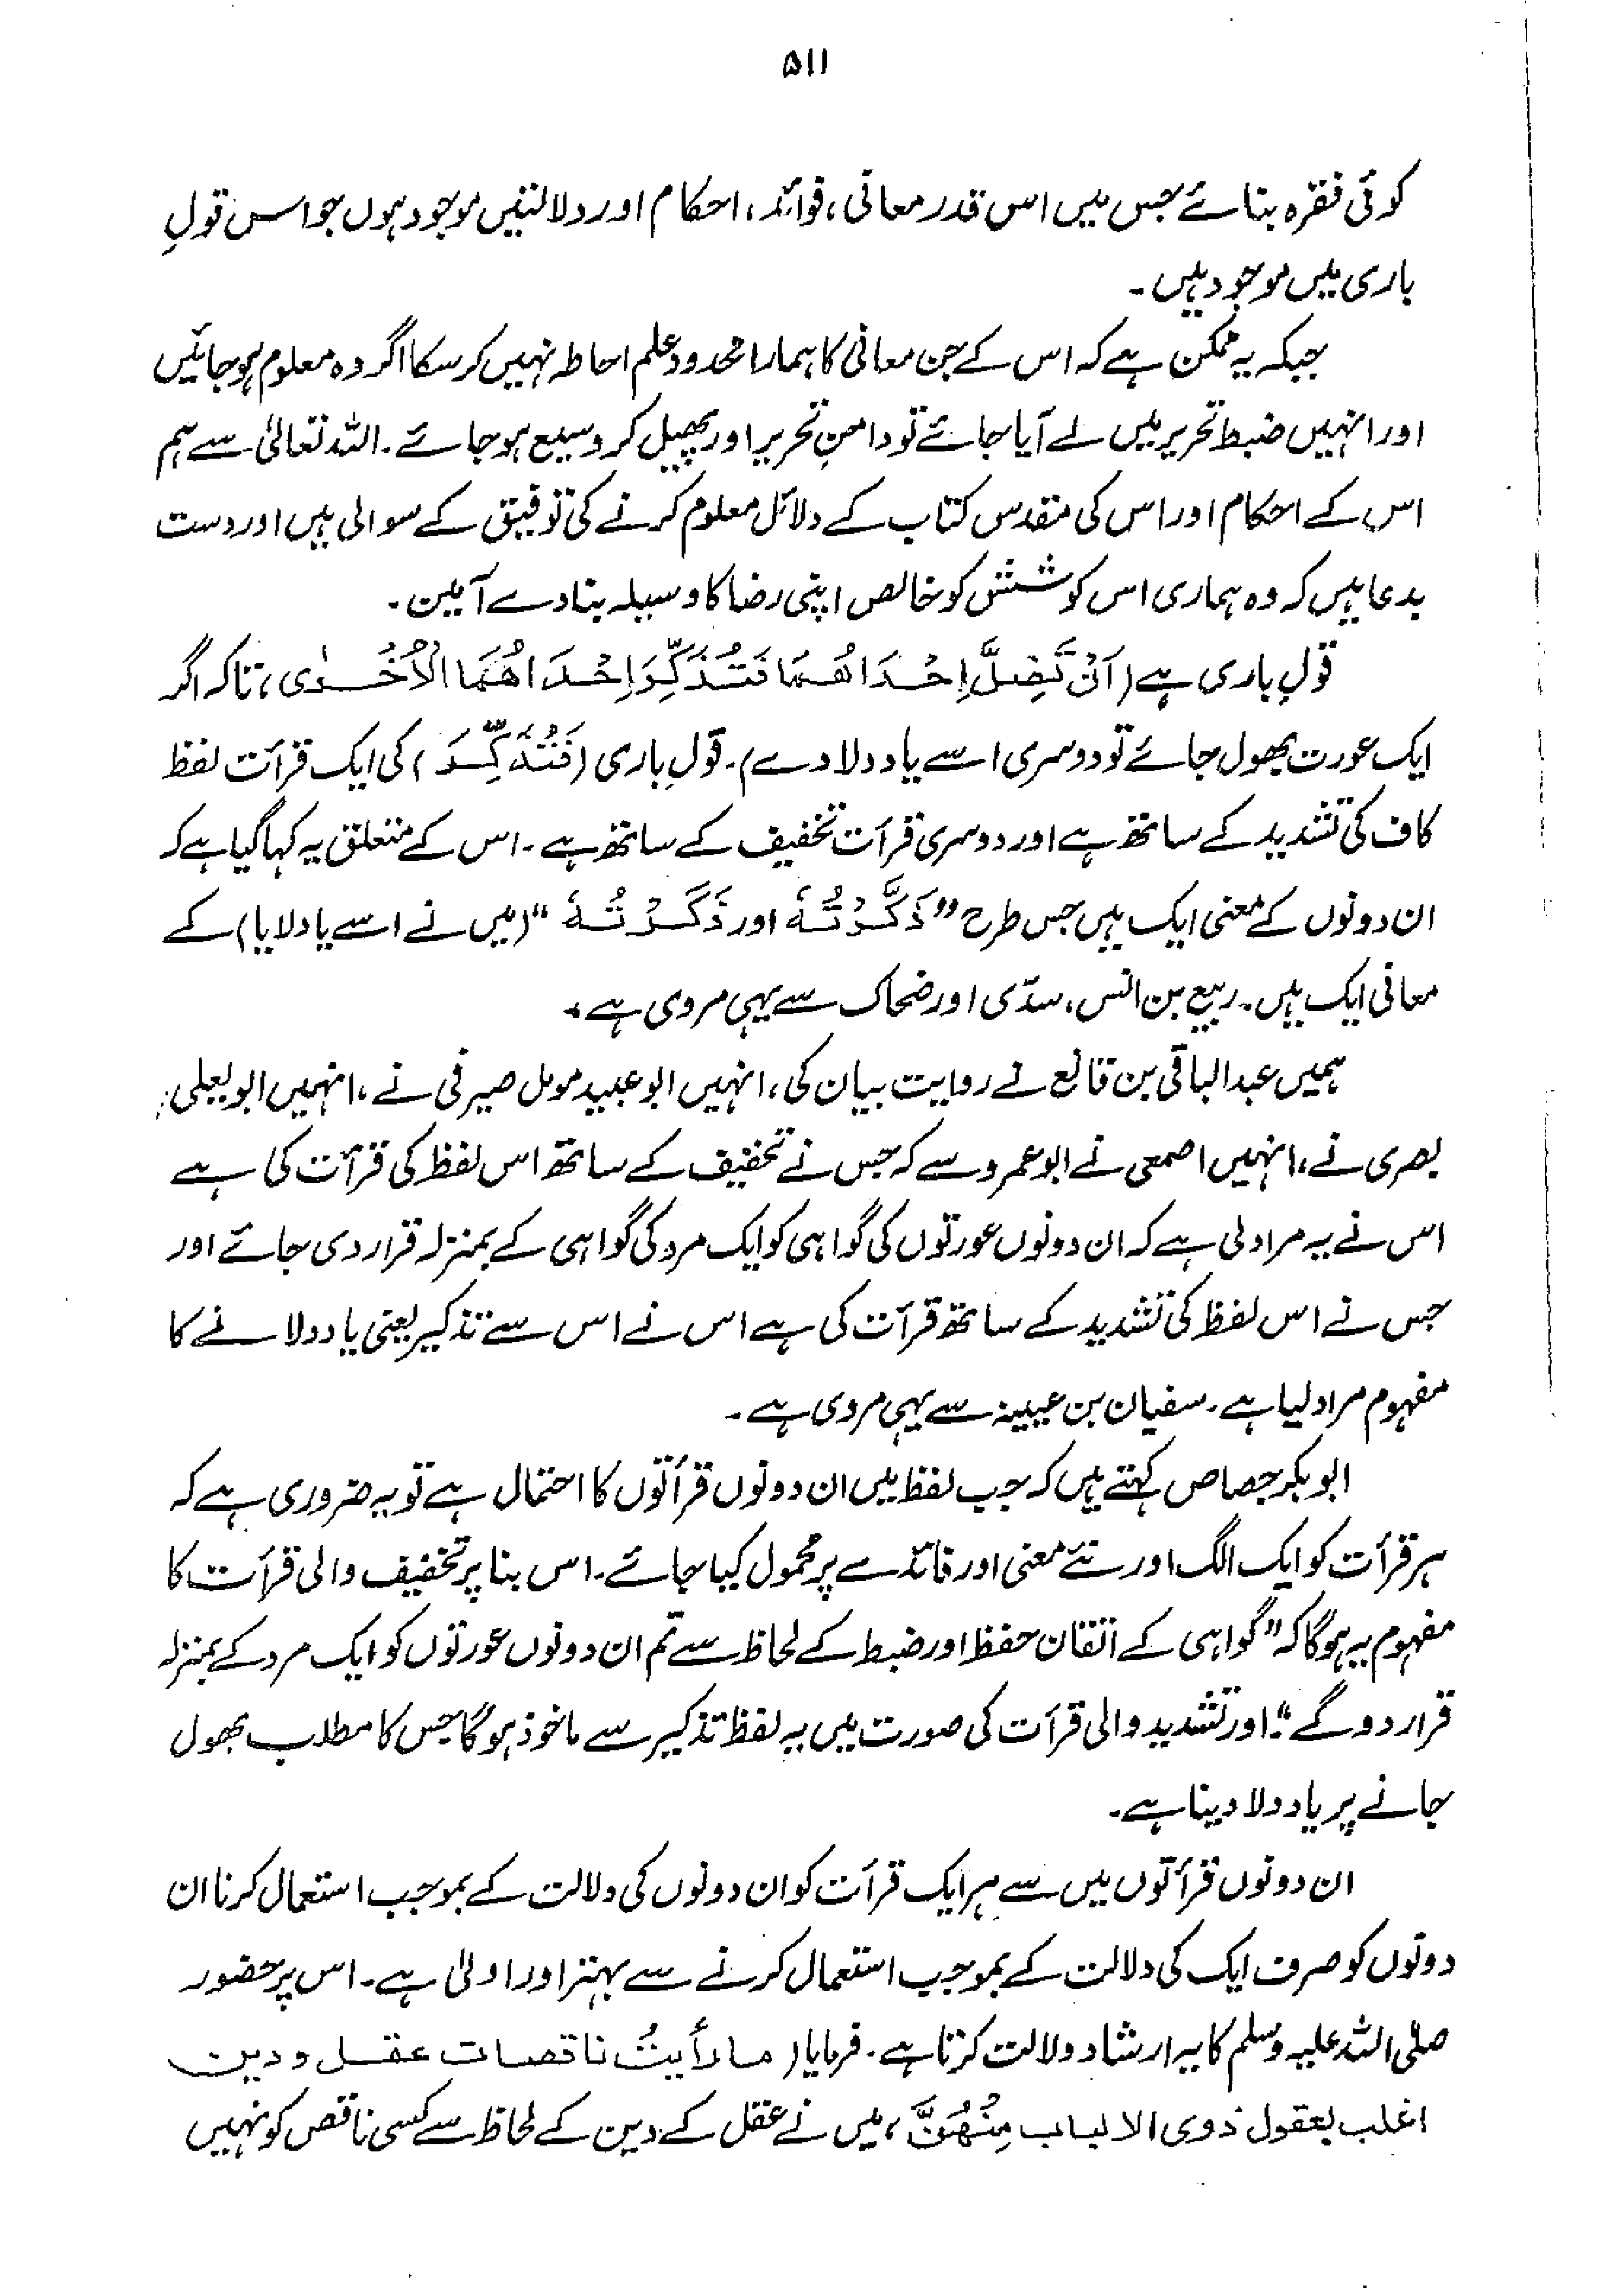 ۵۱۱
کوئی فقرہ بنائے جس میں اس قدر معانی، فوائد، احکام اور دلالتیں موجود ہوں جو اس قولِ
باری میں موجود ہیں۔
جبکہ یہ ممکن ہے کہ اس کے جن معانی کا ہمارا محدود علم احاطہ نہیں کر سکا اگر وہ معلوم ہو جائیں
اور انہیں ضبط تحریر میں لے آیا جائے تو دامنِ تحریر اور پھیل کر وسیع ہو جائے۔ اللہ تعالیٰ سے ہم
اس کے احکام اور اس کی مقدس کتاب کے دلائل معلوم کرنے کی توفیق کے سوالی ہیں اور دست
بدعا ہیں کہ وہ ہماری اس کوشش کو خالص اپنی رضا کا وسیلہ بنا دے آمین۔
قولِ باری ہے (اَنْ تَضِلَّ اِحْدَاهُمَا فَتُذَكِّرَ اِحْدَاهُمَا الْاُخْرٰى، تاکہ اگر
ایک عورت بھول جائے تو دوسری اسے یاد دلا دے)۔ قولِ باری (فَتُذَكِّرَ) کی ایک قرآت لفظ
کاف کی تشدید کے ساتھ ہے اور دوسری قرآت تخفیف کے ساتھ ہے۔ اس کے متعلق یہ کہا گیا ہے کہ
ان دونوں کے معنی ایک ہیں جس طرح ”ذَكَّرْتُهٗ اور ذَكَرْتُهٗ“ (میں نے اسے یاد لایا) کے
معانی ایک ہیں۔ ربیع بن انس، سدّی اور ضحاک سے یہی مروی ہے۔
ہمیں عبدالباقی بن قانع نے روایت بیان کی، انہیں ابوعبید مومل صیرفی نے، انہیں ابو یعلی
بصری نے، انہیں اصمعی نے ابوعمرو سے کہ جس نے تخفیف کے ساتھ اس لفظ کی قرآت کی ہے
اس نے یہ مراد لی ہے کہ ان دونوں عورتوں کی گواہی کو ایک مرد کی گواہی کے بمنزلہ قرار دی جائے اور
جس نے اس لفظ کی تشدید کے ساتھ قرآت کی ہے اس نے اس سے تذکیر یعنی یاد دلانے کا
مفہوم مراد لیا ہے۔ سفیان بن عیینہ سے یہی مروی ہے۔
ابوبکر جصاص کہتے ہیں کہ جب لفظ میں ان دونوں قرأتوں کا احتمال ہے تو یہ ضروری ہے کہ
ہر قرأت کو ایک الگ اور نئے معنی اور فائدے پر محمول کیا جائے۔ اس بنا پر تخفیف والی قرأت کا
مفہوم یہ ہوگا کہ ”گواہی کے اتقان حفظ اور ضبط کے لحاظ سے تم ان دونوں عورتوں کو ایک مرد کے بمنزلہ
قرار دوگے“۔ اور تشدید والی قرآت کی صورت میں یہ لفظ تذکیر سے ماخوذ ہوگا جس کا مطلب بھول
جانے پر یاد دلا دینا ہے۔
ان دونوں قرأتوں میں سے ہر ایک قرأت کو ان دونوں کی دلالت کے بموجب استعمال کرنا ان
دونوں کو صرف ایک کی دلالت کے بموجب استعمال کرنے سے بہتر اور اولیٰ ہے۔ اس پر حضور
صلی اللہ علیہ وسلم کا یہ ارشاد دلالت کرتا ہے۔ فرمایا (ما رأيتُ ناقصات عقل و دین
اغلب بعقول ذوی الالباب مِنْهُنَّ، میں نے عقل کے دین کے لحاظ سے کسی ناقص کو نہیں